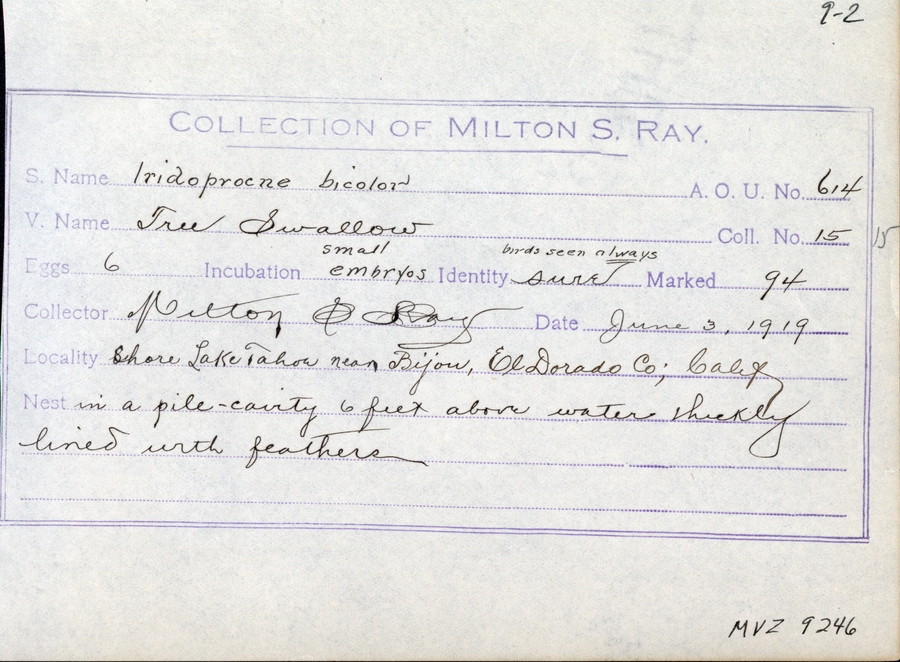 9-2
COLLECTION OF MILTON S. RAY.
S. Name Iridoprocne bicolor A. O. U. No. 614
V. Name Tree Swallow Coll. No. 15 15
small birds seen always
Eggs 6 Incubation embryos Identity sure Marked 94
Collector Milton S Ray Date June 3, 1919
Locality Shore Lake Tahoe near Bijou, El Dorado Co; Calif
Nest in a pile-cavity 6 feet above water thickly
lined with feathers
MVZ 9246